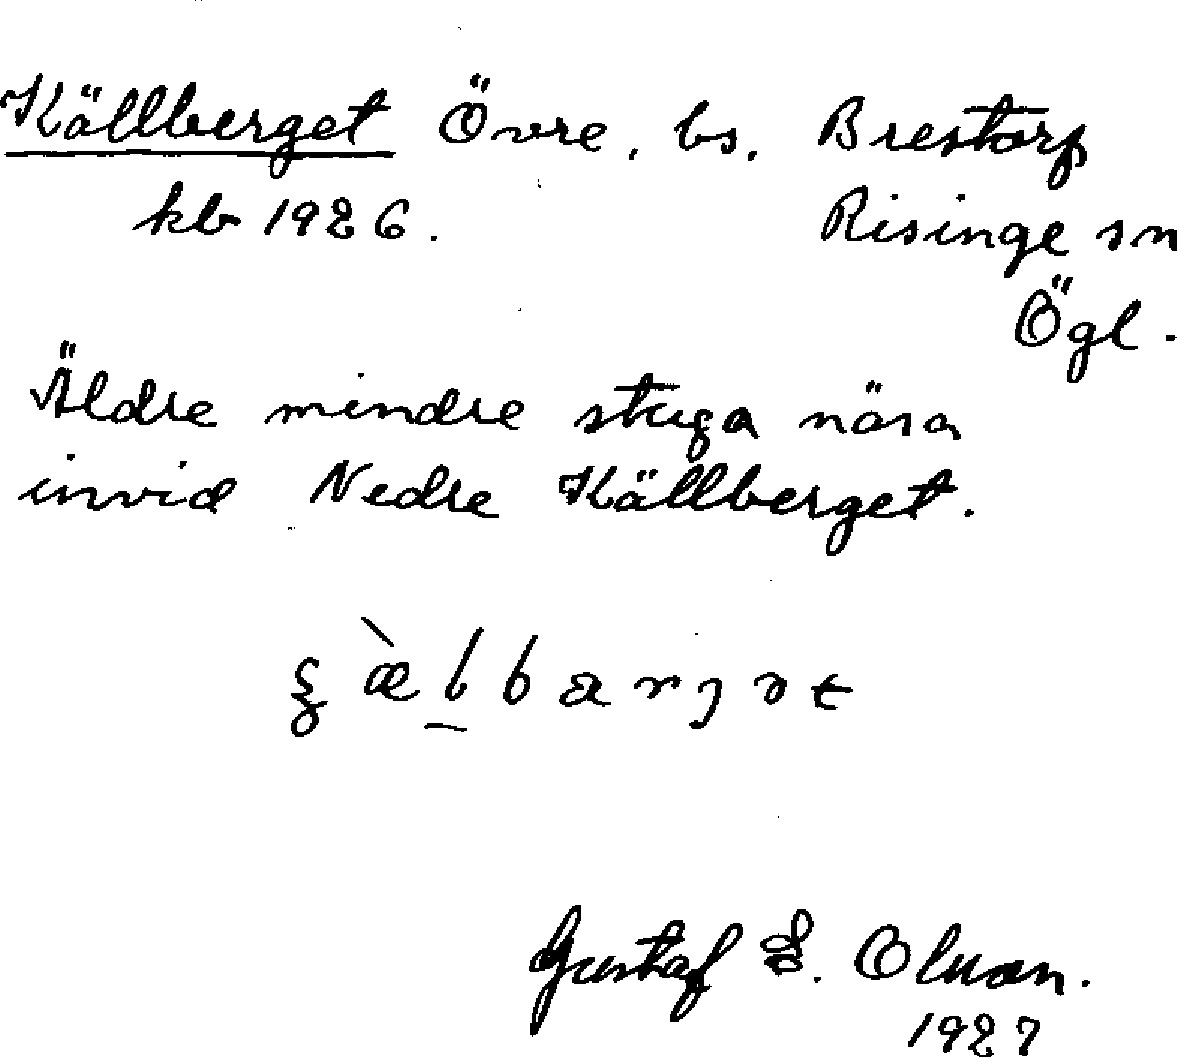 Källberget Övre, bs. Brestorp
kb 1926. Risinge sn
Ögl.
Äldre mindre stuga nära
invid Nedre Källberget.
Gustaf E. 
1927